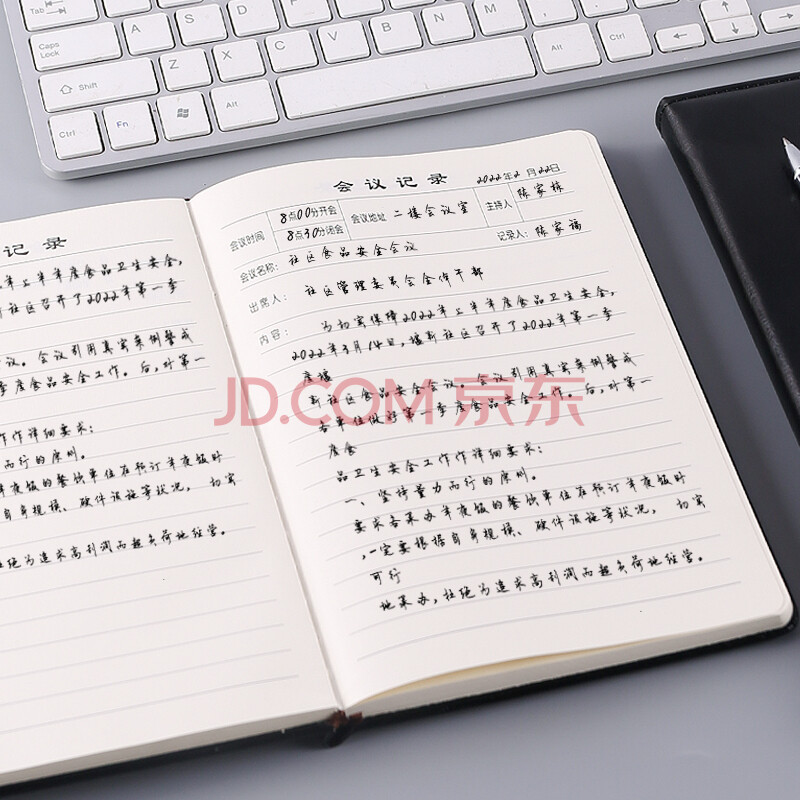 Tab
Caps Lock
A
S
D
F
G
H
J
K
L
Shift
Z
X
C
V
B
N
M
Ctrl
Fn
Alt
Alt
Ctrl
记 录
年上半年度食品卫生安全,
新社区召开了2022年第一季
议。会议引用真实案例警戒
季度食品安全工作。后,对第一
作作详细要求:
而行的原则。
年夜饭的餐饮单位在预订年夜饭时
自身规模、硬件设施等状况, 切实
杜绝为追求高利润而超负荷地经营。
会议记录
2022年2月22日
会议时间
8点00分开会
8点30分闭会
会议地址 二楼会议室
主持人 陈家栋
记录人: 陈家福
会议名称: 社区食品安全会议
出席人: 社区管理委员会全体干部
内容: 为切实保障2022年上半年度食品卫生安全,
2022年3月14日,墙新社区召开了2022年第一季
度墙
新社区食品安全会议。会议引用真实案例警戒
各单位做好第一季度食品安全工作。后,对第一
度食
品卫生安全工作作详细要求:
一、坚持量力而行的原则。
要求各承办年夜饭的餐饮单位在预订年夜饭时
,一定要根据自身规模、硬件设施等状况, 切实
可行
地承办,杜绝为追求高利润而超负荷地经营。
JD.COM 京东